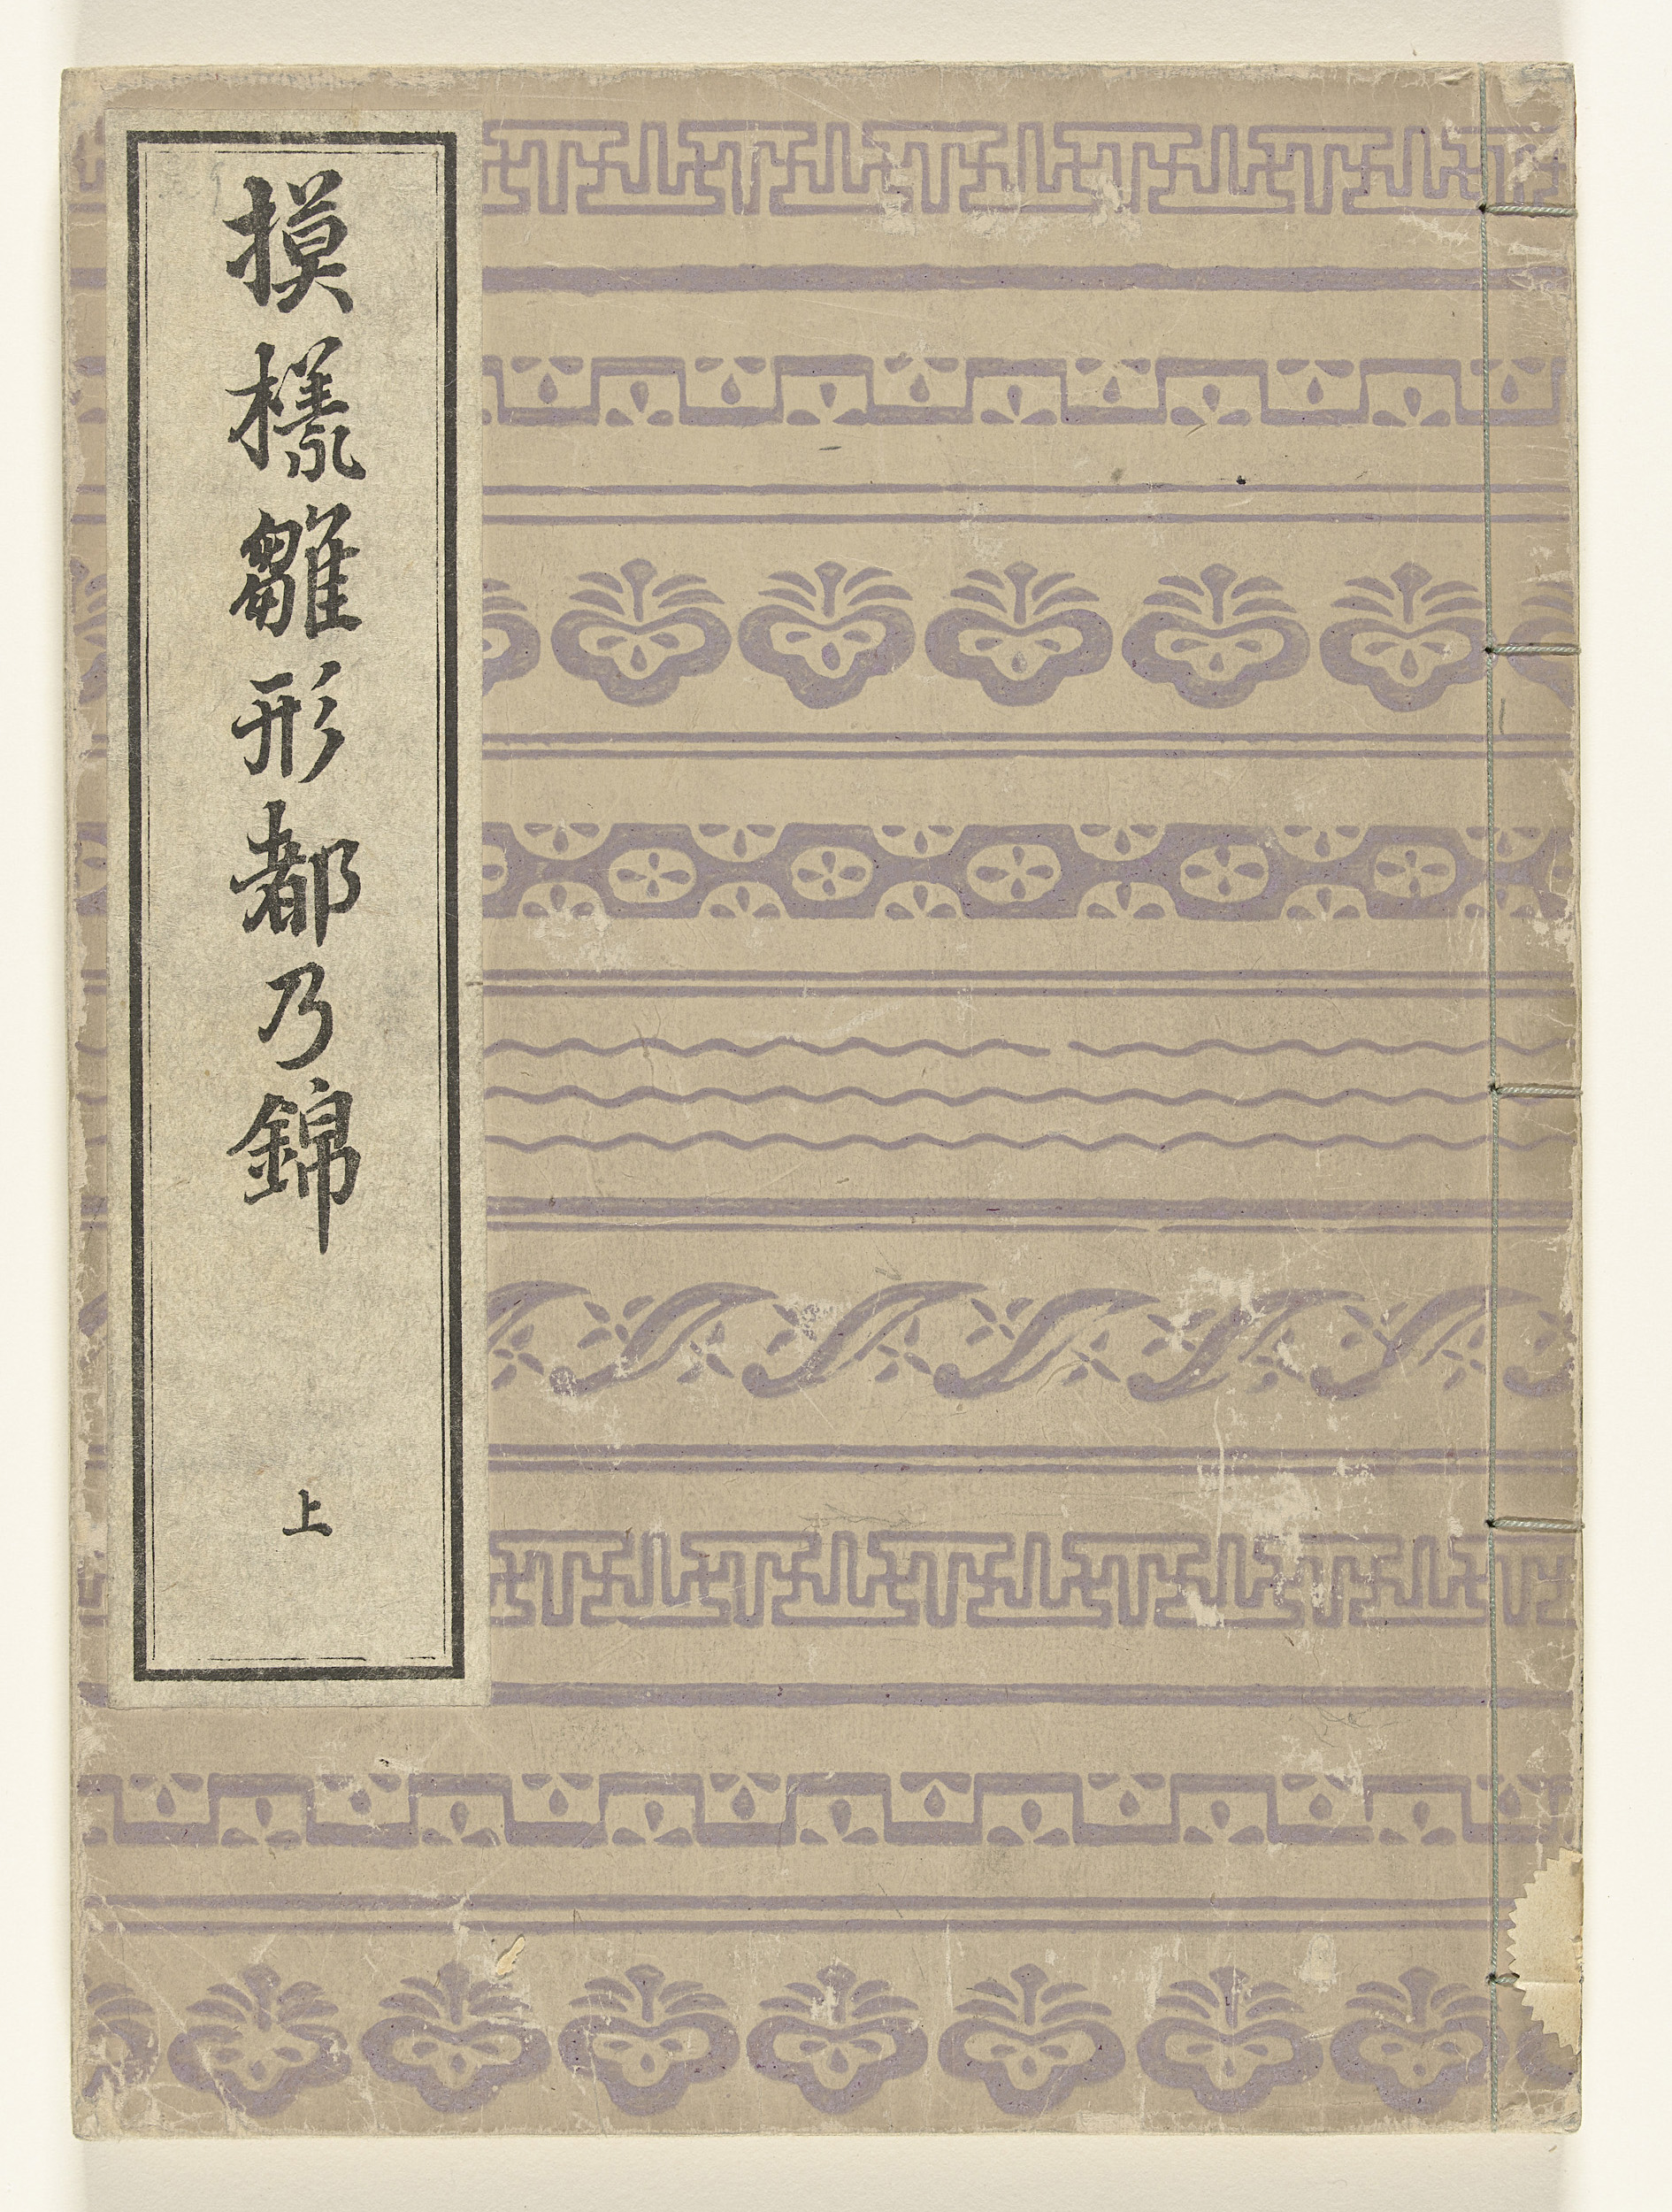 摸樣雛形都乃錦
上